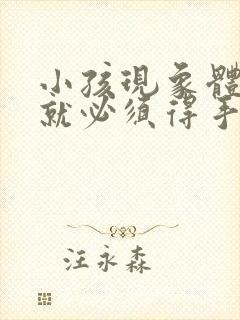 小孩現象體
就必須得手
汪永森